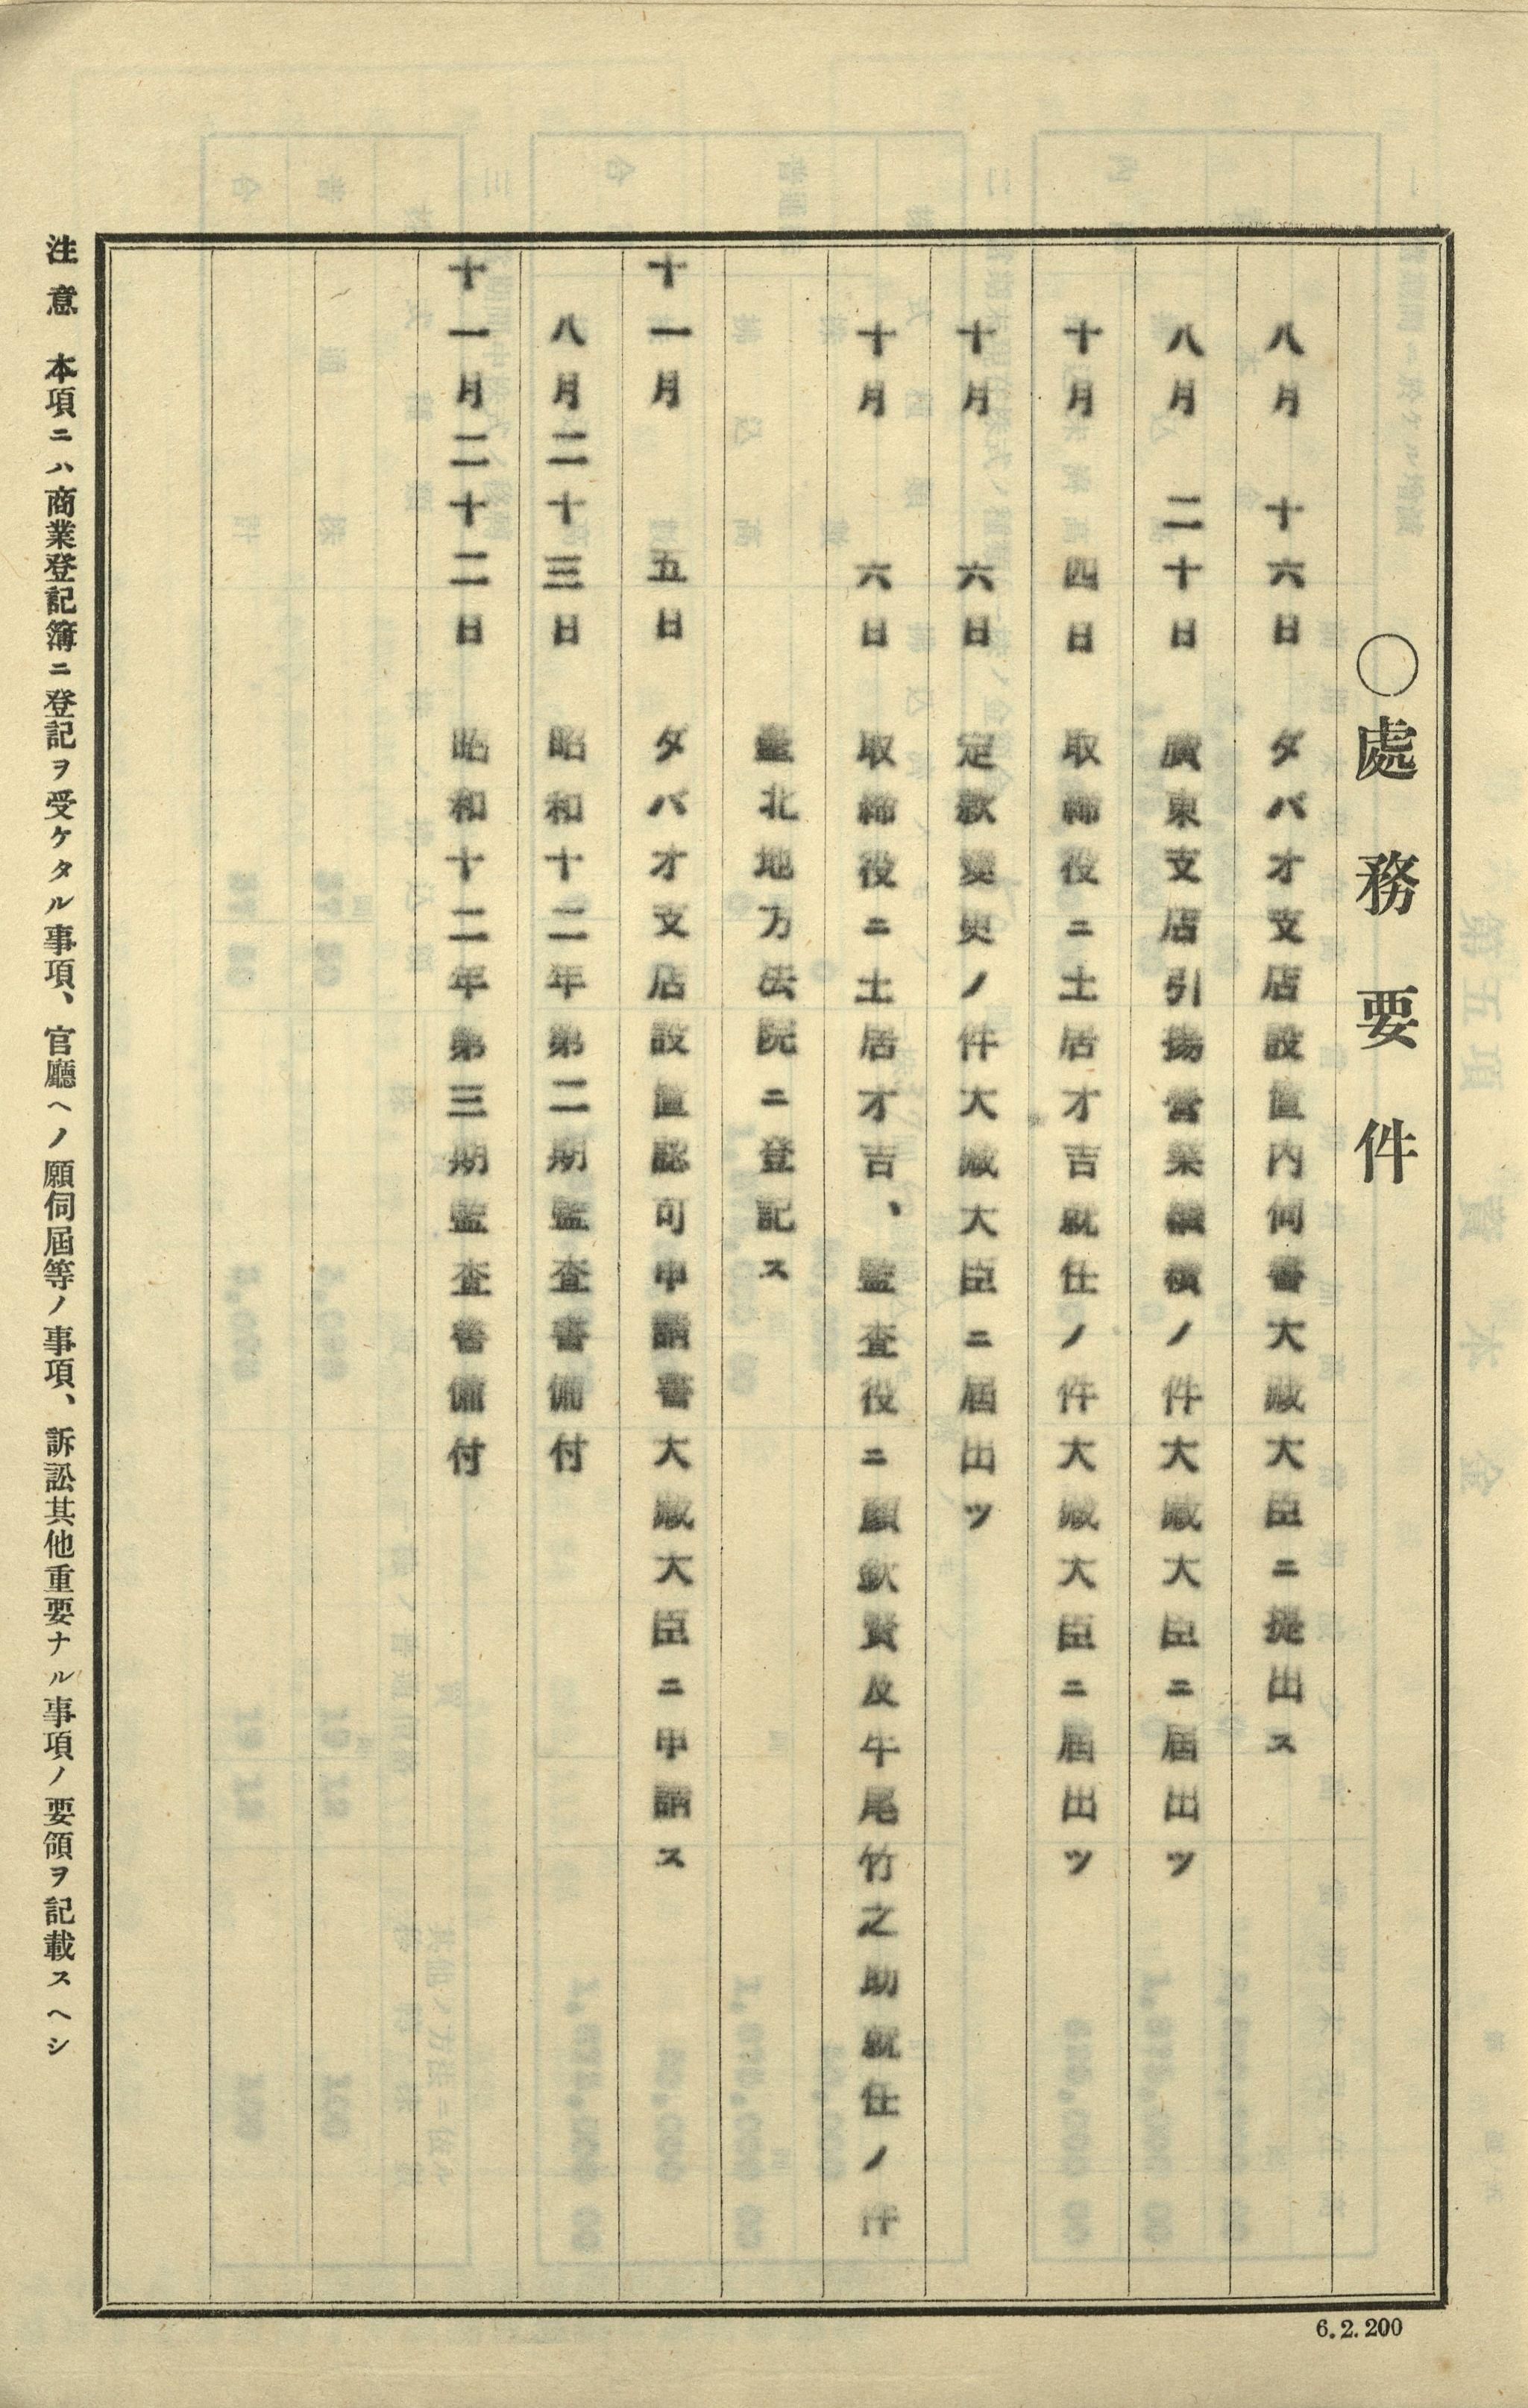 〇處務要件
八月十六日 ダバオ支店設置内伺書大藏大臣ニ提出ス
八月二十日 廣東支店引揚營業繼橫ノ件大藏大臣ニ屆出ツ
十月四日 取締役ニ土居才吉就任ノ件大藏大臣ニ屆出ツ
十月六日 定款變更ノ件大藏大臣ニ屆出ツ
十月六日 取締役ニ土居才吉、監査役ニ顏欽賢及牛尾竹之助就任ノ件
臺北地方法院ニ登記ス
十一月五日 ダバオ支店設置認可申請書大藏大臣ニ申請ス
八月二十三日 昭和十二年第二期監査書備付
十一月二十二日 昭和十二年第三期監査書備付
注意 本項ニハ商業登記簿ニ登記ヲ受ケタル事項、官廳ヘノ願伺屆等ノ事項、訴訟其他重要ナル事項ノ要領ヲ記載スヘシ
6.2.200